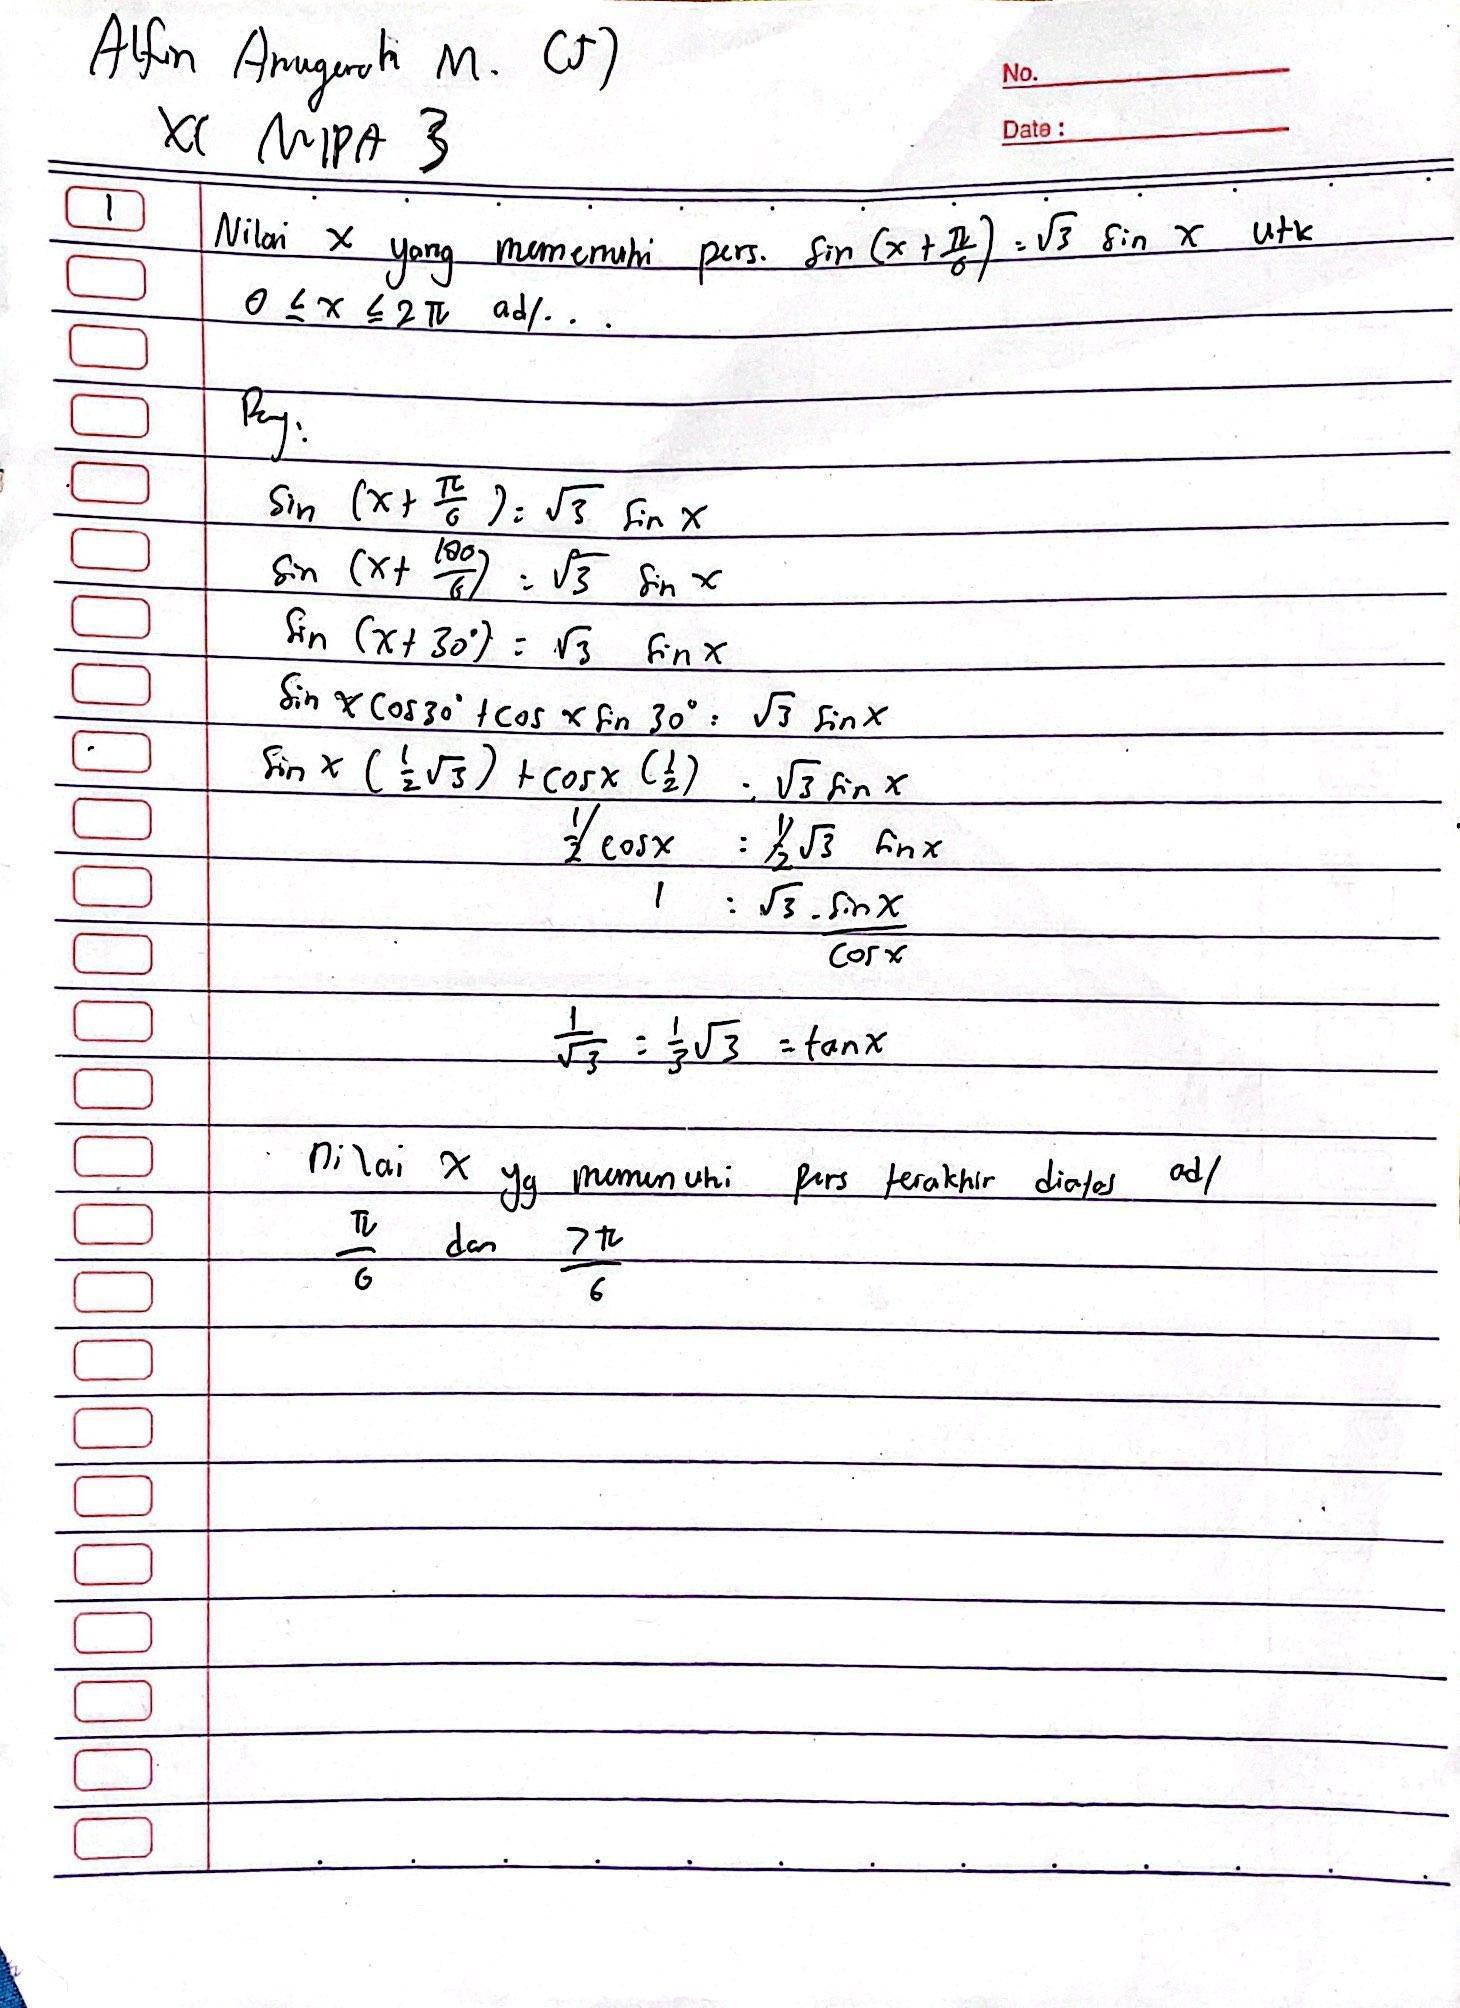 Alfin Anugerah M. (5)
XI MIPA 3
No.
Date :
1
Nilai x yang memenuhi pers. sin (x + π/6) = √3 sin x utk
0 ≤ x ≤ 2π adl...
Peny:
sin (x + π/6) = √3 sin x
sin (x + 180/6) = √3 sin x
sin (x + 30°) = √3 sin x
sin x cos 30° + cos x sin 30° = √3 sin x
sin x (1/2 √3) + cos x (1/2) = √3 sin x
1/2 cos x = 1/2 √3 sin x
1 = √3 . sin x / cos x
1/√3 = 1/3 √3 = tan x
nilai x yg memenuhi pers terakhir diatas adl
π/6 dan 7π/6